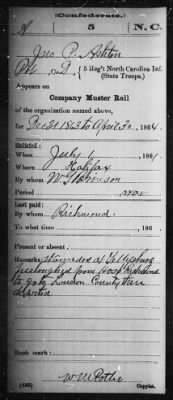 (Confederate.)
5 N.C.
Jno P. Ashton
Pvt D, 5 Reg't North Carolina Inf.
(State Troops.)
Appears on
Company Muster Roll
of the organization named above,
for Dec 31 1863 to April 30, 1864.
Enlisted:
When July 1, 1861
Where Halifax
By whom
Period war
Last paid:
By whom Richmond
To what time , 186
Present or absent
Remarks: Wounded at Gettysburg
furloughed from hosp Richmond
to go to Loudon County
deserted
Book mark:
(642) Copyist.